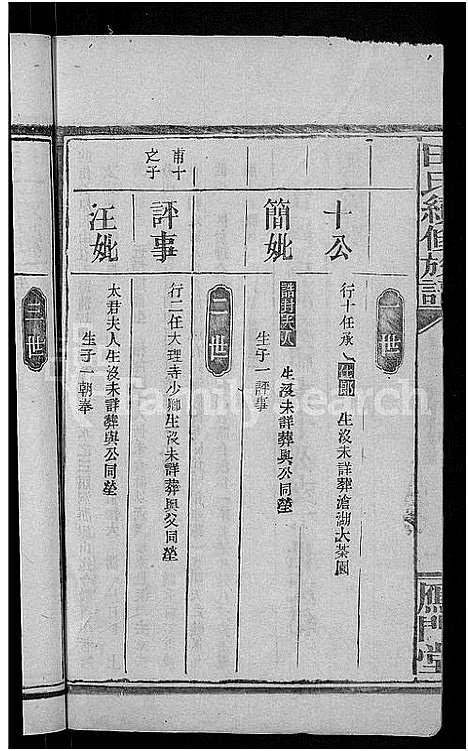 田氏續修族譜
雁門堂
一世
十公
行十任承仕郎 生沒未詳葬滄湖大茶園
簡妣
誥封夫人 生沒未詳葬與公同塋
生子一評事
二世
甫十之子
評事
行二任大理寺少卿生沒未詳葬與父同塋
汪妣
太君夫人生沒未詳葬與公同塋
生子一朝奉
三世
FamilySearch